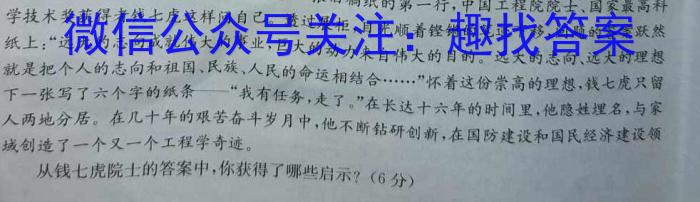 稿纸的第一行，中国工程院院士、国家最高科
学技术奖获得者钱七虎这样问自己。透过
顺着铿锵的
跃然
纸上：“远大的志向成就伟大的事业，伟大的动力来自伟大的目的。远大的志向、远大的理想
就是把个人的志向和祖国、民族、人民的命运相结合……”怀着这份崇高的理想，钱七虎只留
下一张写了六个字的纸条——“我有任务，走了。”在长达十六年的时间里，他隐姓埋名，与家
人两地分居。在几十年的艰苦奋斗岁月中，他不断钻研创新，在国防建设和国民经济建设领
域创造了一个又一个工程学奇迹。
从钱七虎院士的答案中，你获得了哪些启示？（6分）
微信公众号关注：趣找答案